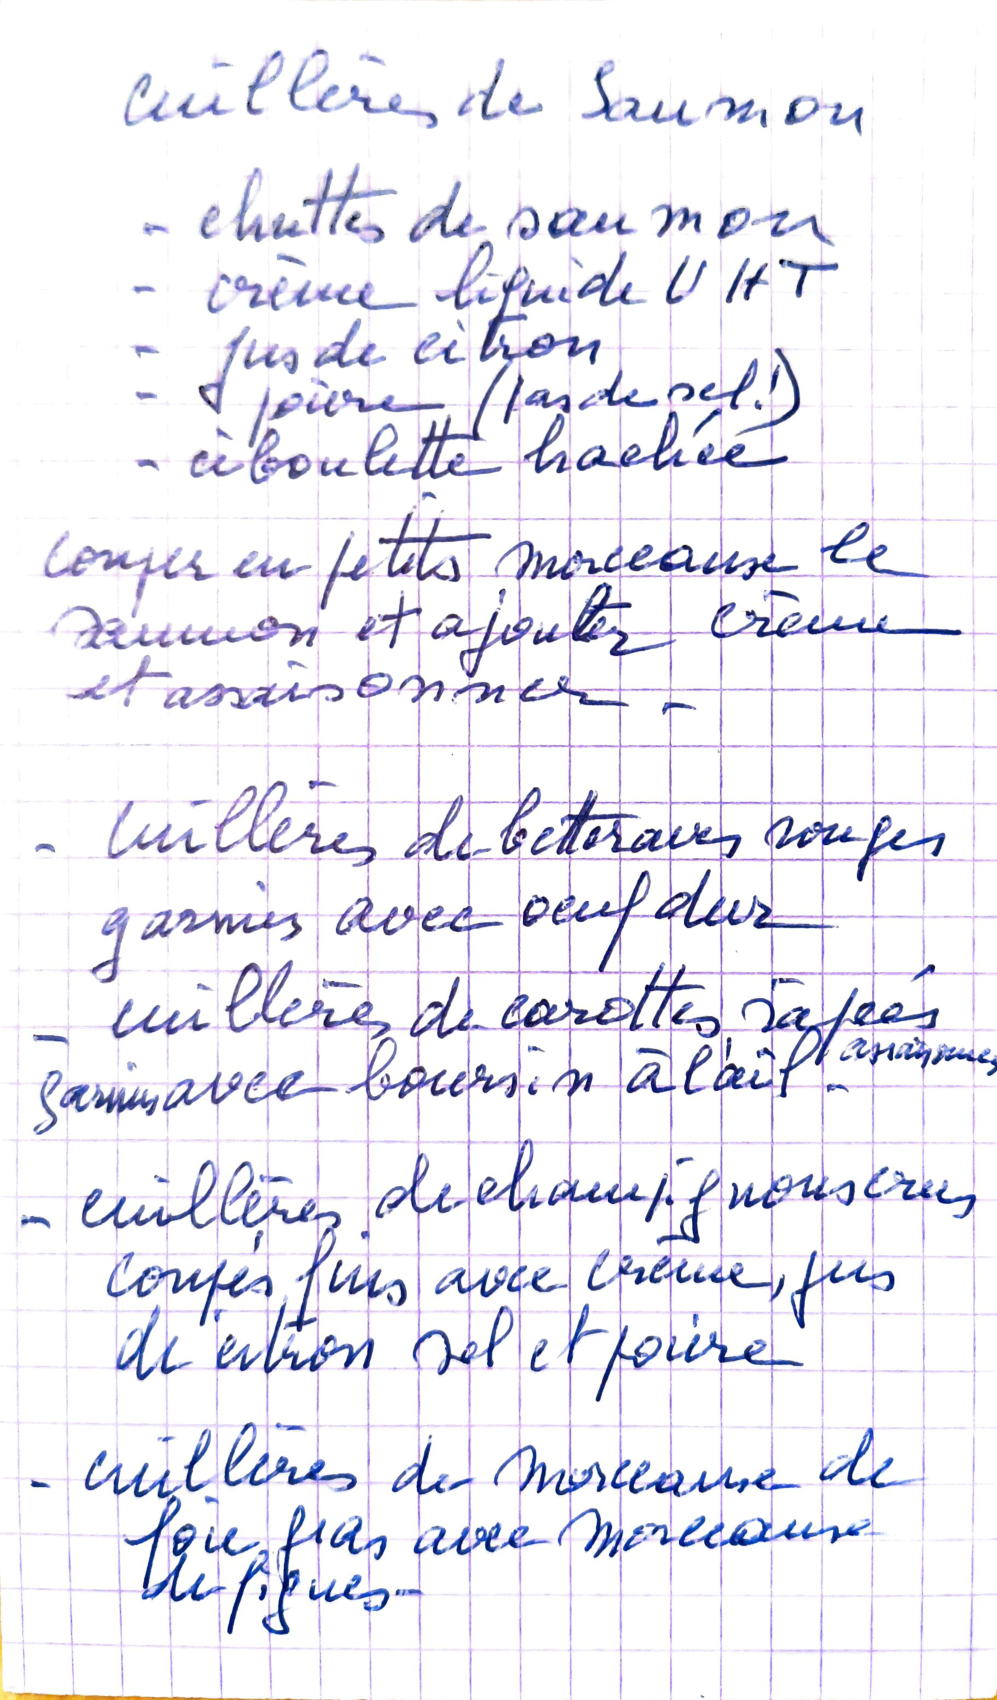 Cuillères de Saumon
- chuttes de saumon
- crème liquide UHT
- jus de citron
- poivre (pas de sel!)
- ciboulette hachée
couper en petits morceaux le
saumon et ajouter crème
et assaisonner -
- Cuillères de betteraves rouges
garnies avec oeuf dur
- cuillères de carottes râpées
assaisonnées
garnies avec boursin à l'ail -
- cuillères de champignons crus
coupés fins avec crème, jus
de citron sel et poivre
- cuillères de morceaux de
foie gras avec morceaux
de figues -